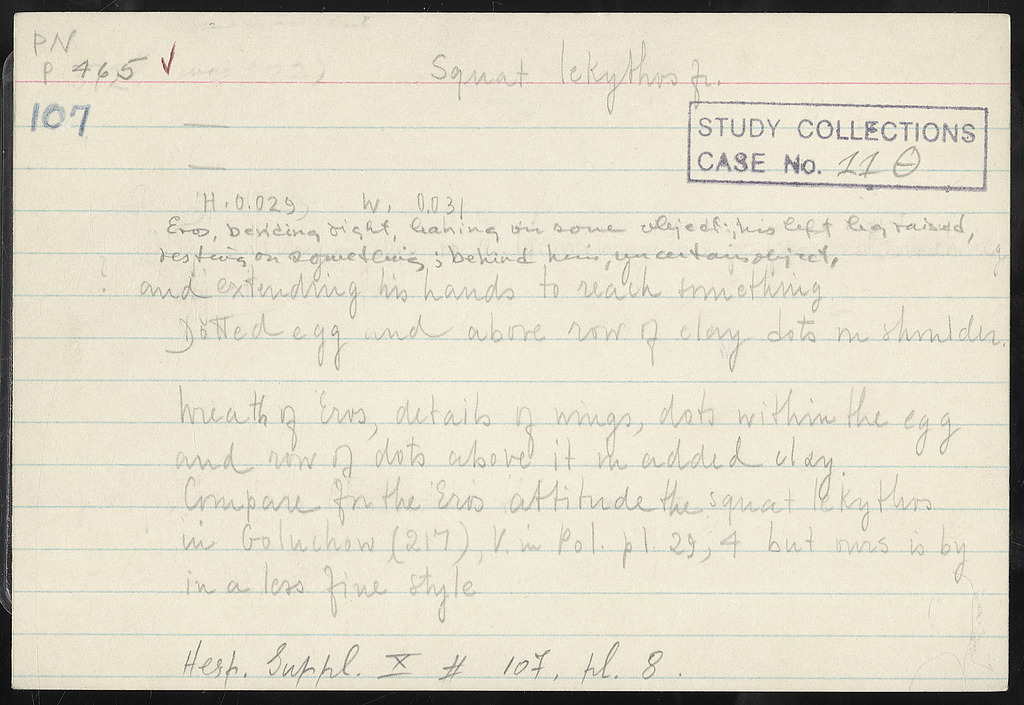 PN
P 465 ✓
Squat lekythos fr.
107
STUDY COLLECTIONS
CASE No. 11 Θ
H. 0.029 W. 0.031
Eros, bending right, leaning on some object; his left leg raised,
resting on something; behind him, uncertain object,
? and extending his hands to reach something
Dotted egg and above row of clay dots on shoulder.
Wreath of Eros, details of wings, dots within the egg
and row of dots above it in added clay.
Compare for the Eros attitude the squat lekythos
in Goluchow (217), V. in Pol. pl. 29, 4 but ours is by
in a less fine style
Hesp. Suppl. X # 107, pl. 8.